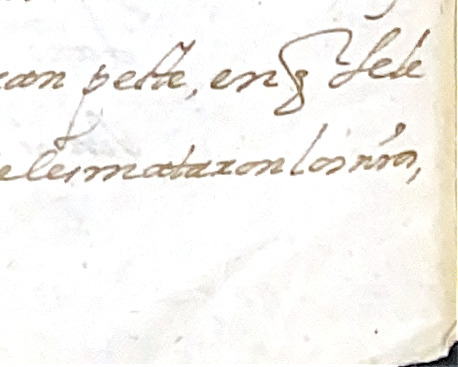 can peste, en q̃ se le
e les mataron los nr̃os,